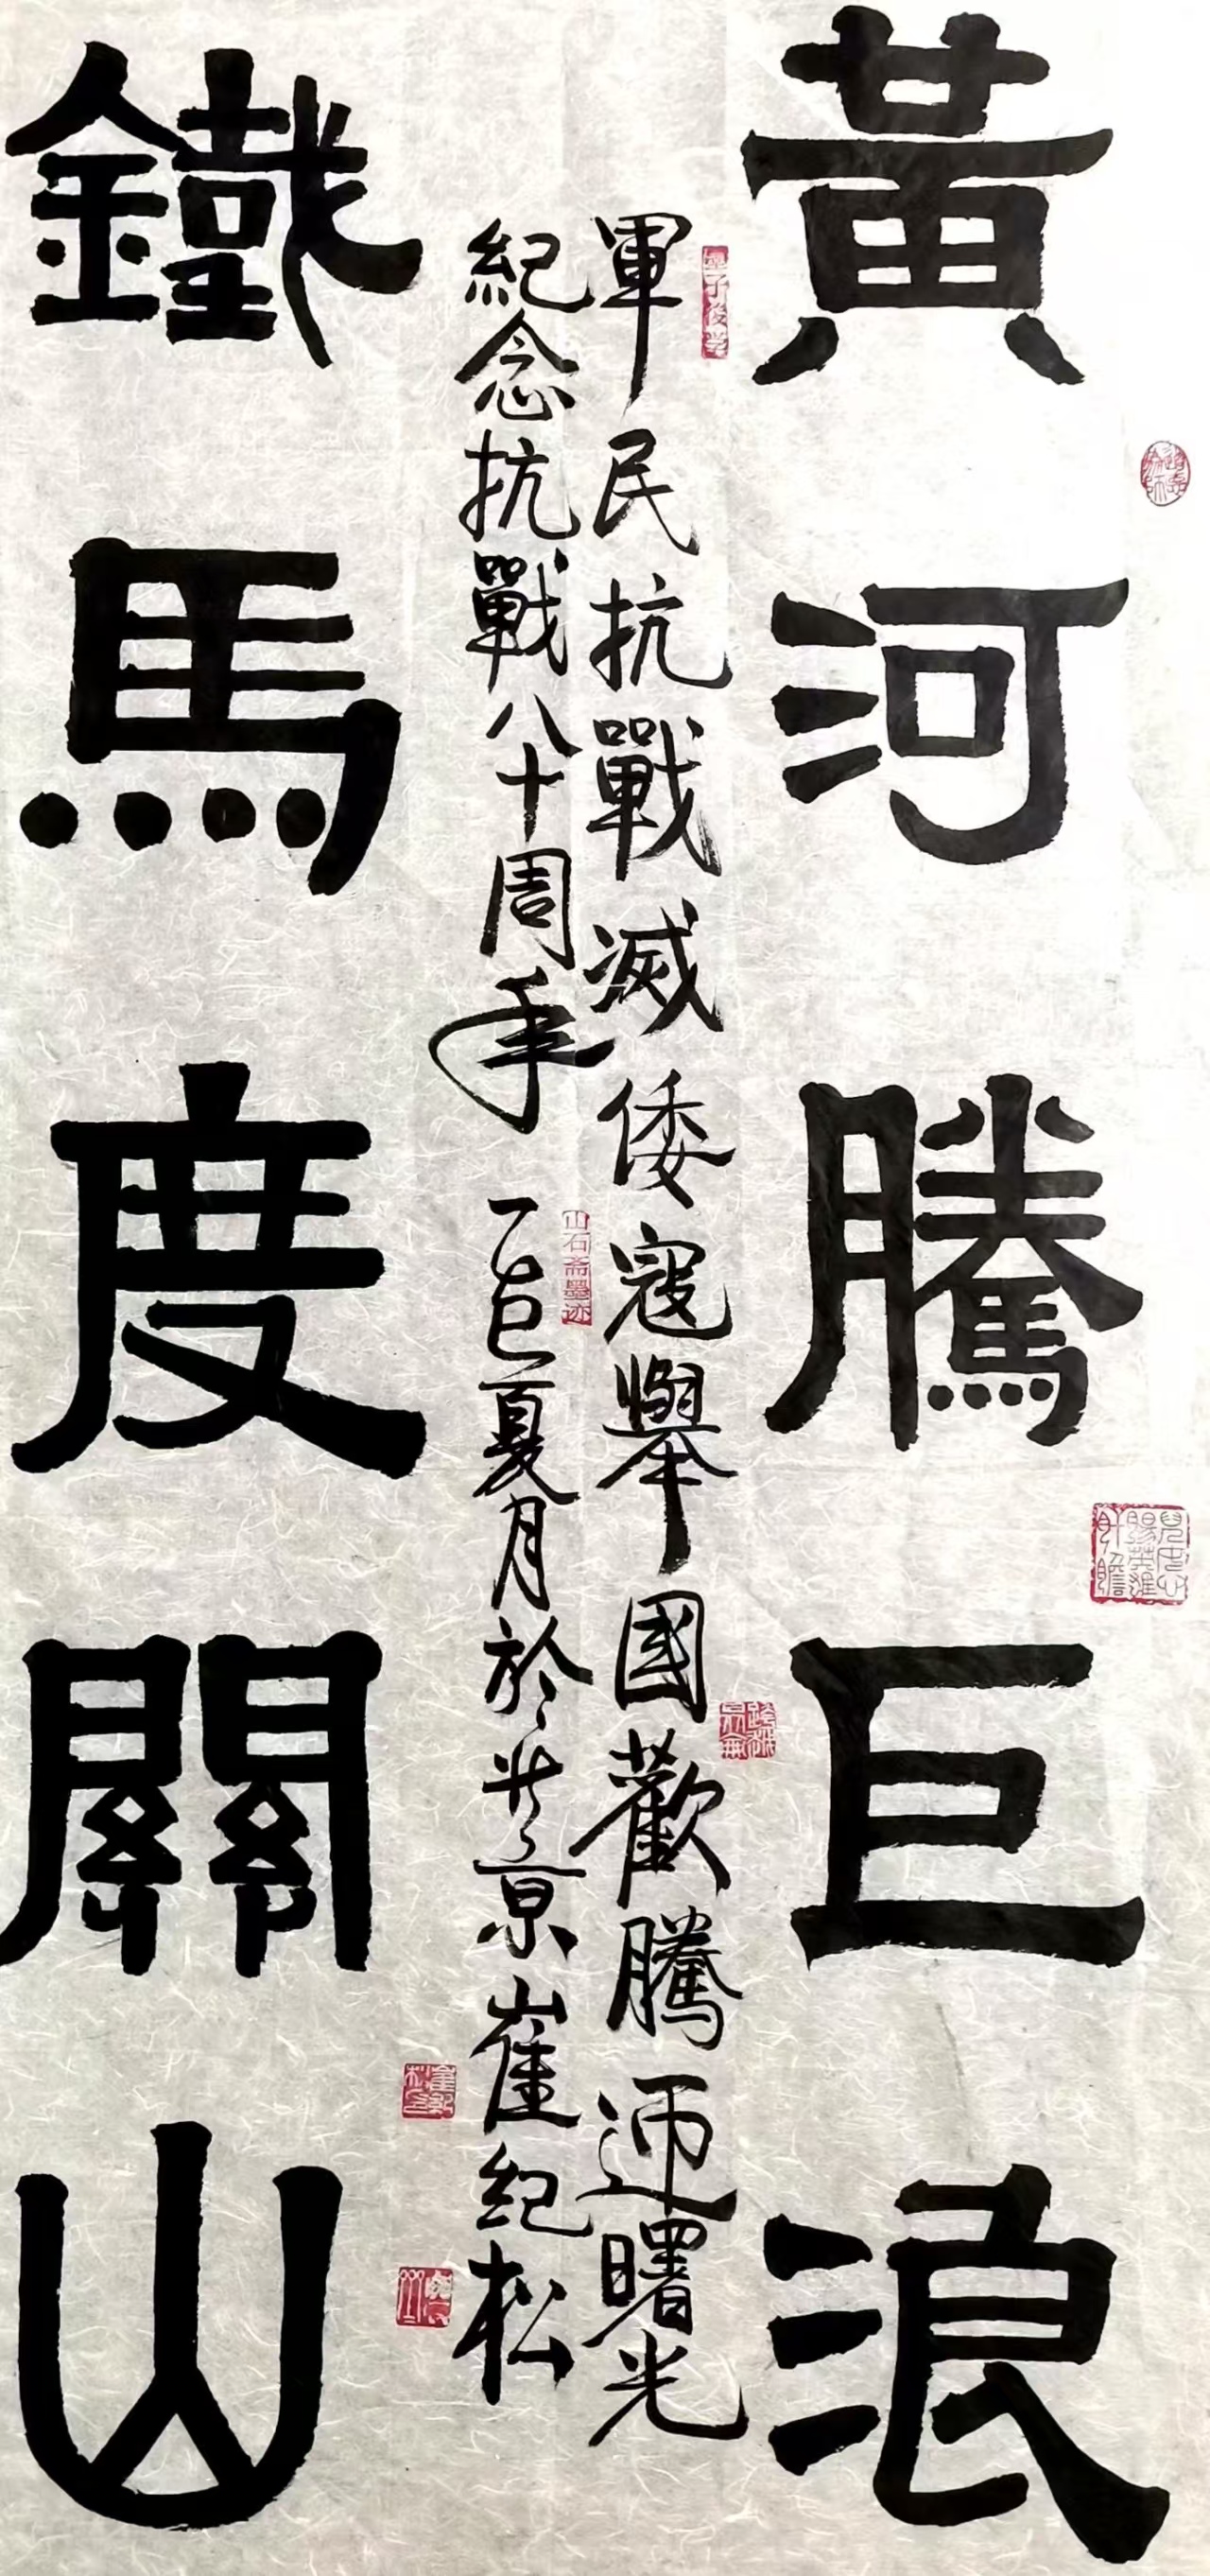 黃河騰巨浪
軍民抗戰滅倭寇舉國歡騰迊曙光
紀念抗戰八十周年 乙巳夏月於北京崔纪松
鐵馬度關山
山石斋墨迹